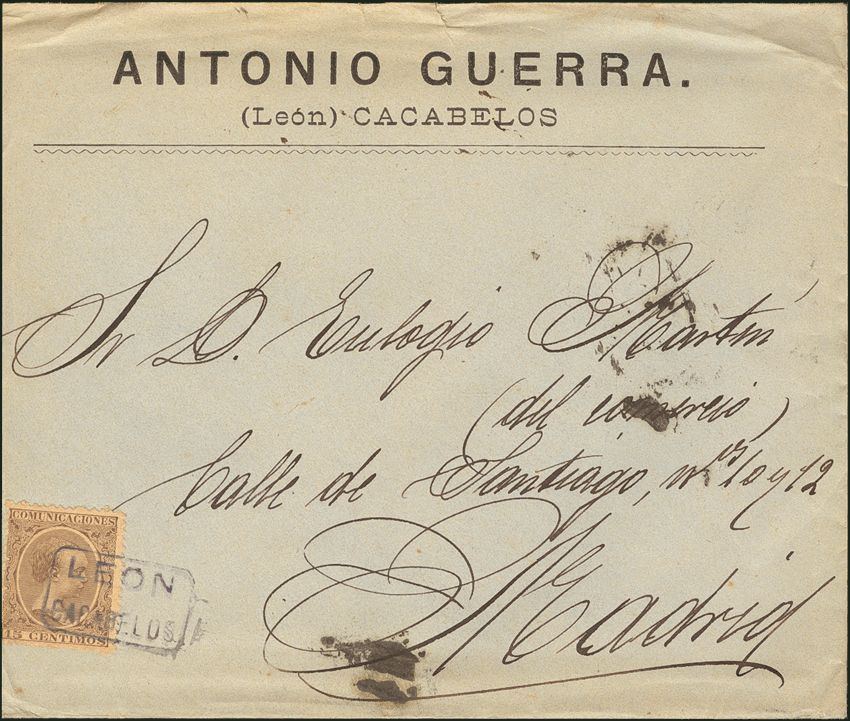 ANTONIO GUERRA.
(León) CACABELOS
Sr D. Eulogio Martin
(del comercio)
Calle de Santiago, nos 10 y 12
Madrid
COMUNICACIONES
LEON
CACABELOS
15 CENTIMOS